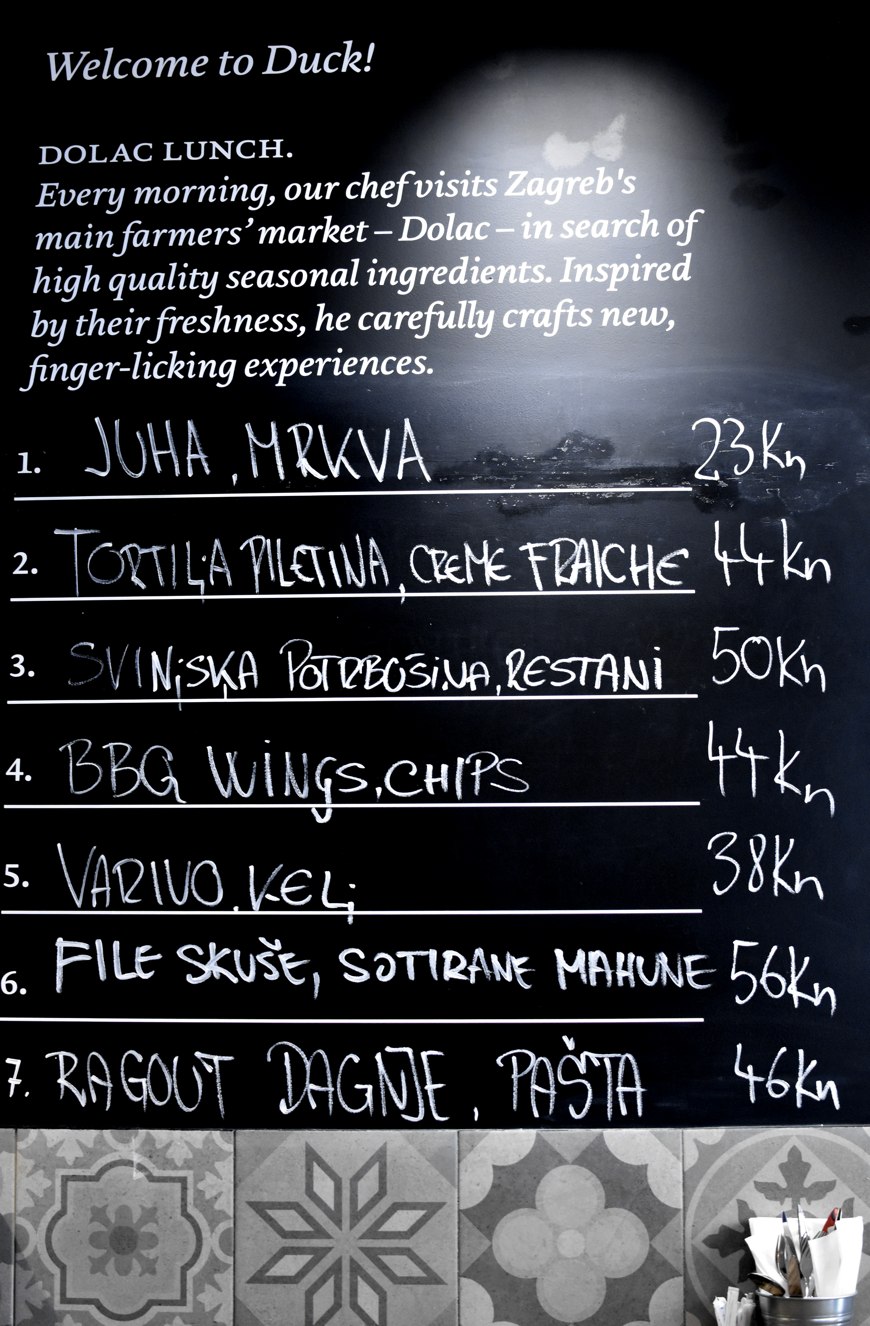 Welcome to Duck!
DOLAC LUNCH.
Every morning, our chef visits Zagreb's
main farmers' market – Dolac – in search of
high quality seasonal ingredients. Inspired
by their freshness, he carefully crafts new,
finger-licking experiences.
1. JUHA, MRKVA 23Kn
2. TORTILJA PILETINA, CREME FRAICHE 44Kn
3. SVINjSKA POTRBUŠINA, RESTANI 50Kn
4. BBQ WiNgS, CHIPS 44Kn
5. VARIVO, KELj 38Kn
6. FILE SKUŠE, SOTIRANE MAHUNE 56Kn
7. RAGOUT DAGNJE, PAŠTA 46Kn